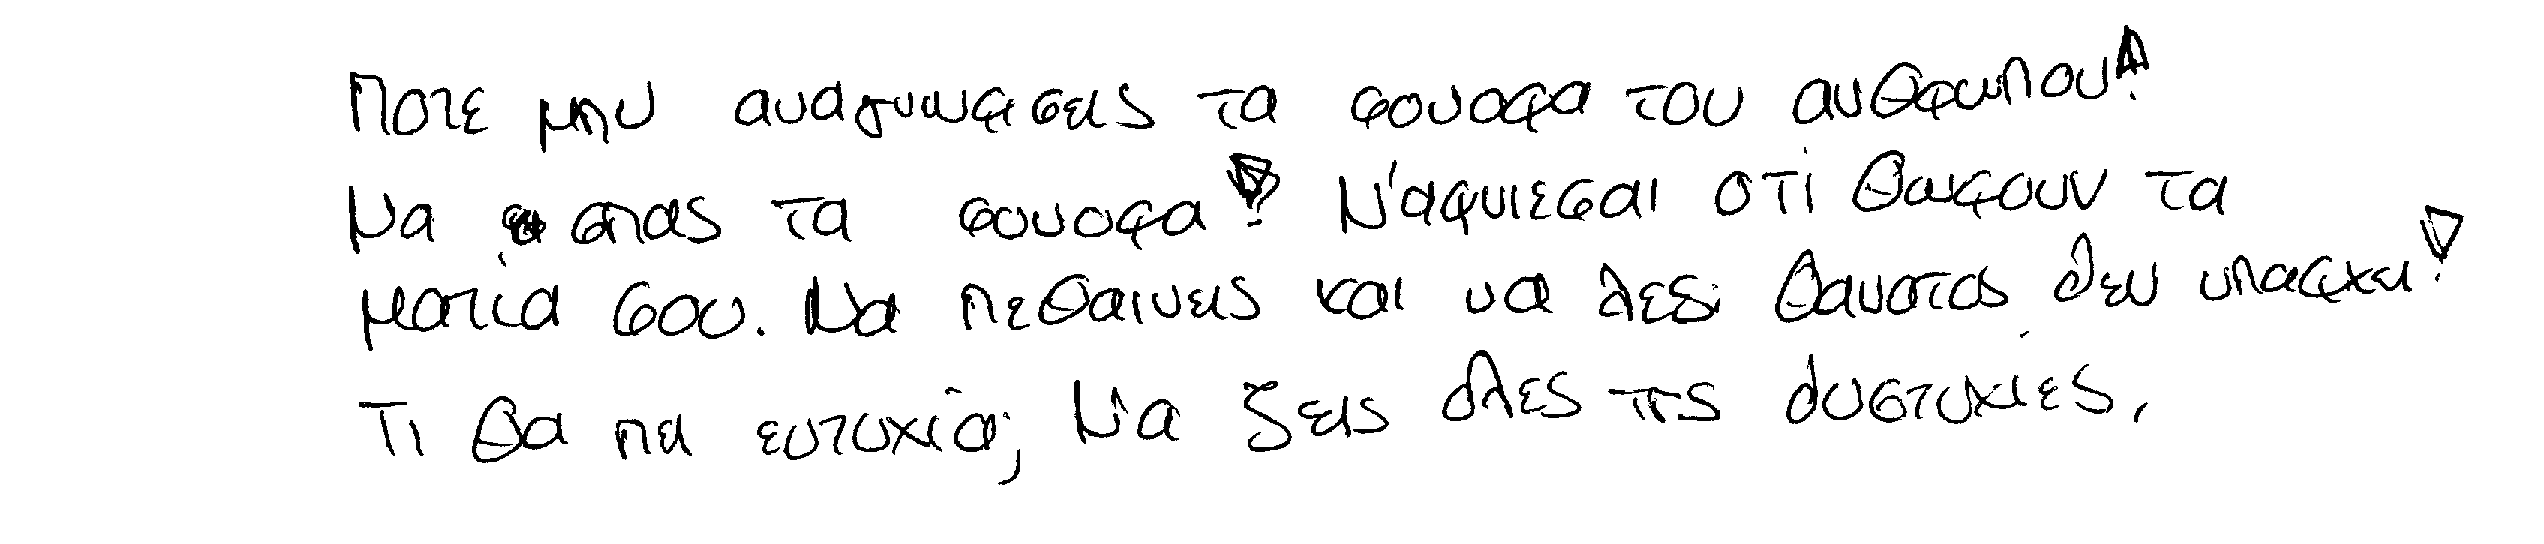 Ποτε μην αναγνωρισεις τα συνορα του ανθρωπου!
Να σπας τα συνορα! Ν'αρνιεσαι οτι θωρουν τα
ματια σου. Να πεθαινεις και να λες: θανατος δεν υπαρχει!
Τι θα πει ευτυχια; Να ζεις ολες τις δυστυχιες.